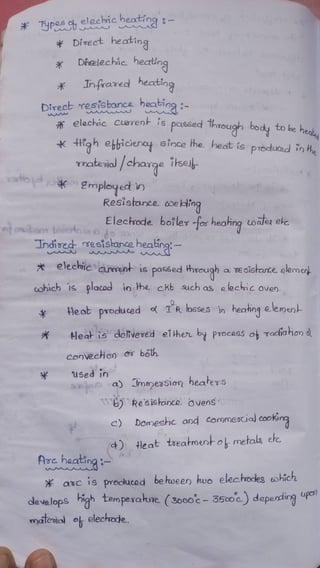 * Types of electric heating :-
* Direct heating
* Dielechic heating
* Infrared heating
Direct resistance heating :-
* electric current is passed through body to be heated
* High efficiency since the heat is produced in the
material / charge itself.
* Employed in
Resistance welding
Electrode boiler for heating water etc
Indirect resistance heating :-
* electric current is passed through a resistance element
which is placed in the ckt such as electric oven
* Heat produced ∝ I²R losses in heating element
* Heat is delivered either by process of radiation &
convection or both
* used in
a) Immersion heaters
b) Resistance ovens
c) Domestic and commercial cooking
d) Heat treatment of metals etc
Arc heating :-
* arc is produced between two electrodes which
develops high temperature (3000°c - 3500°c) depending upon
material of electrode.